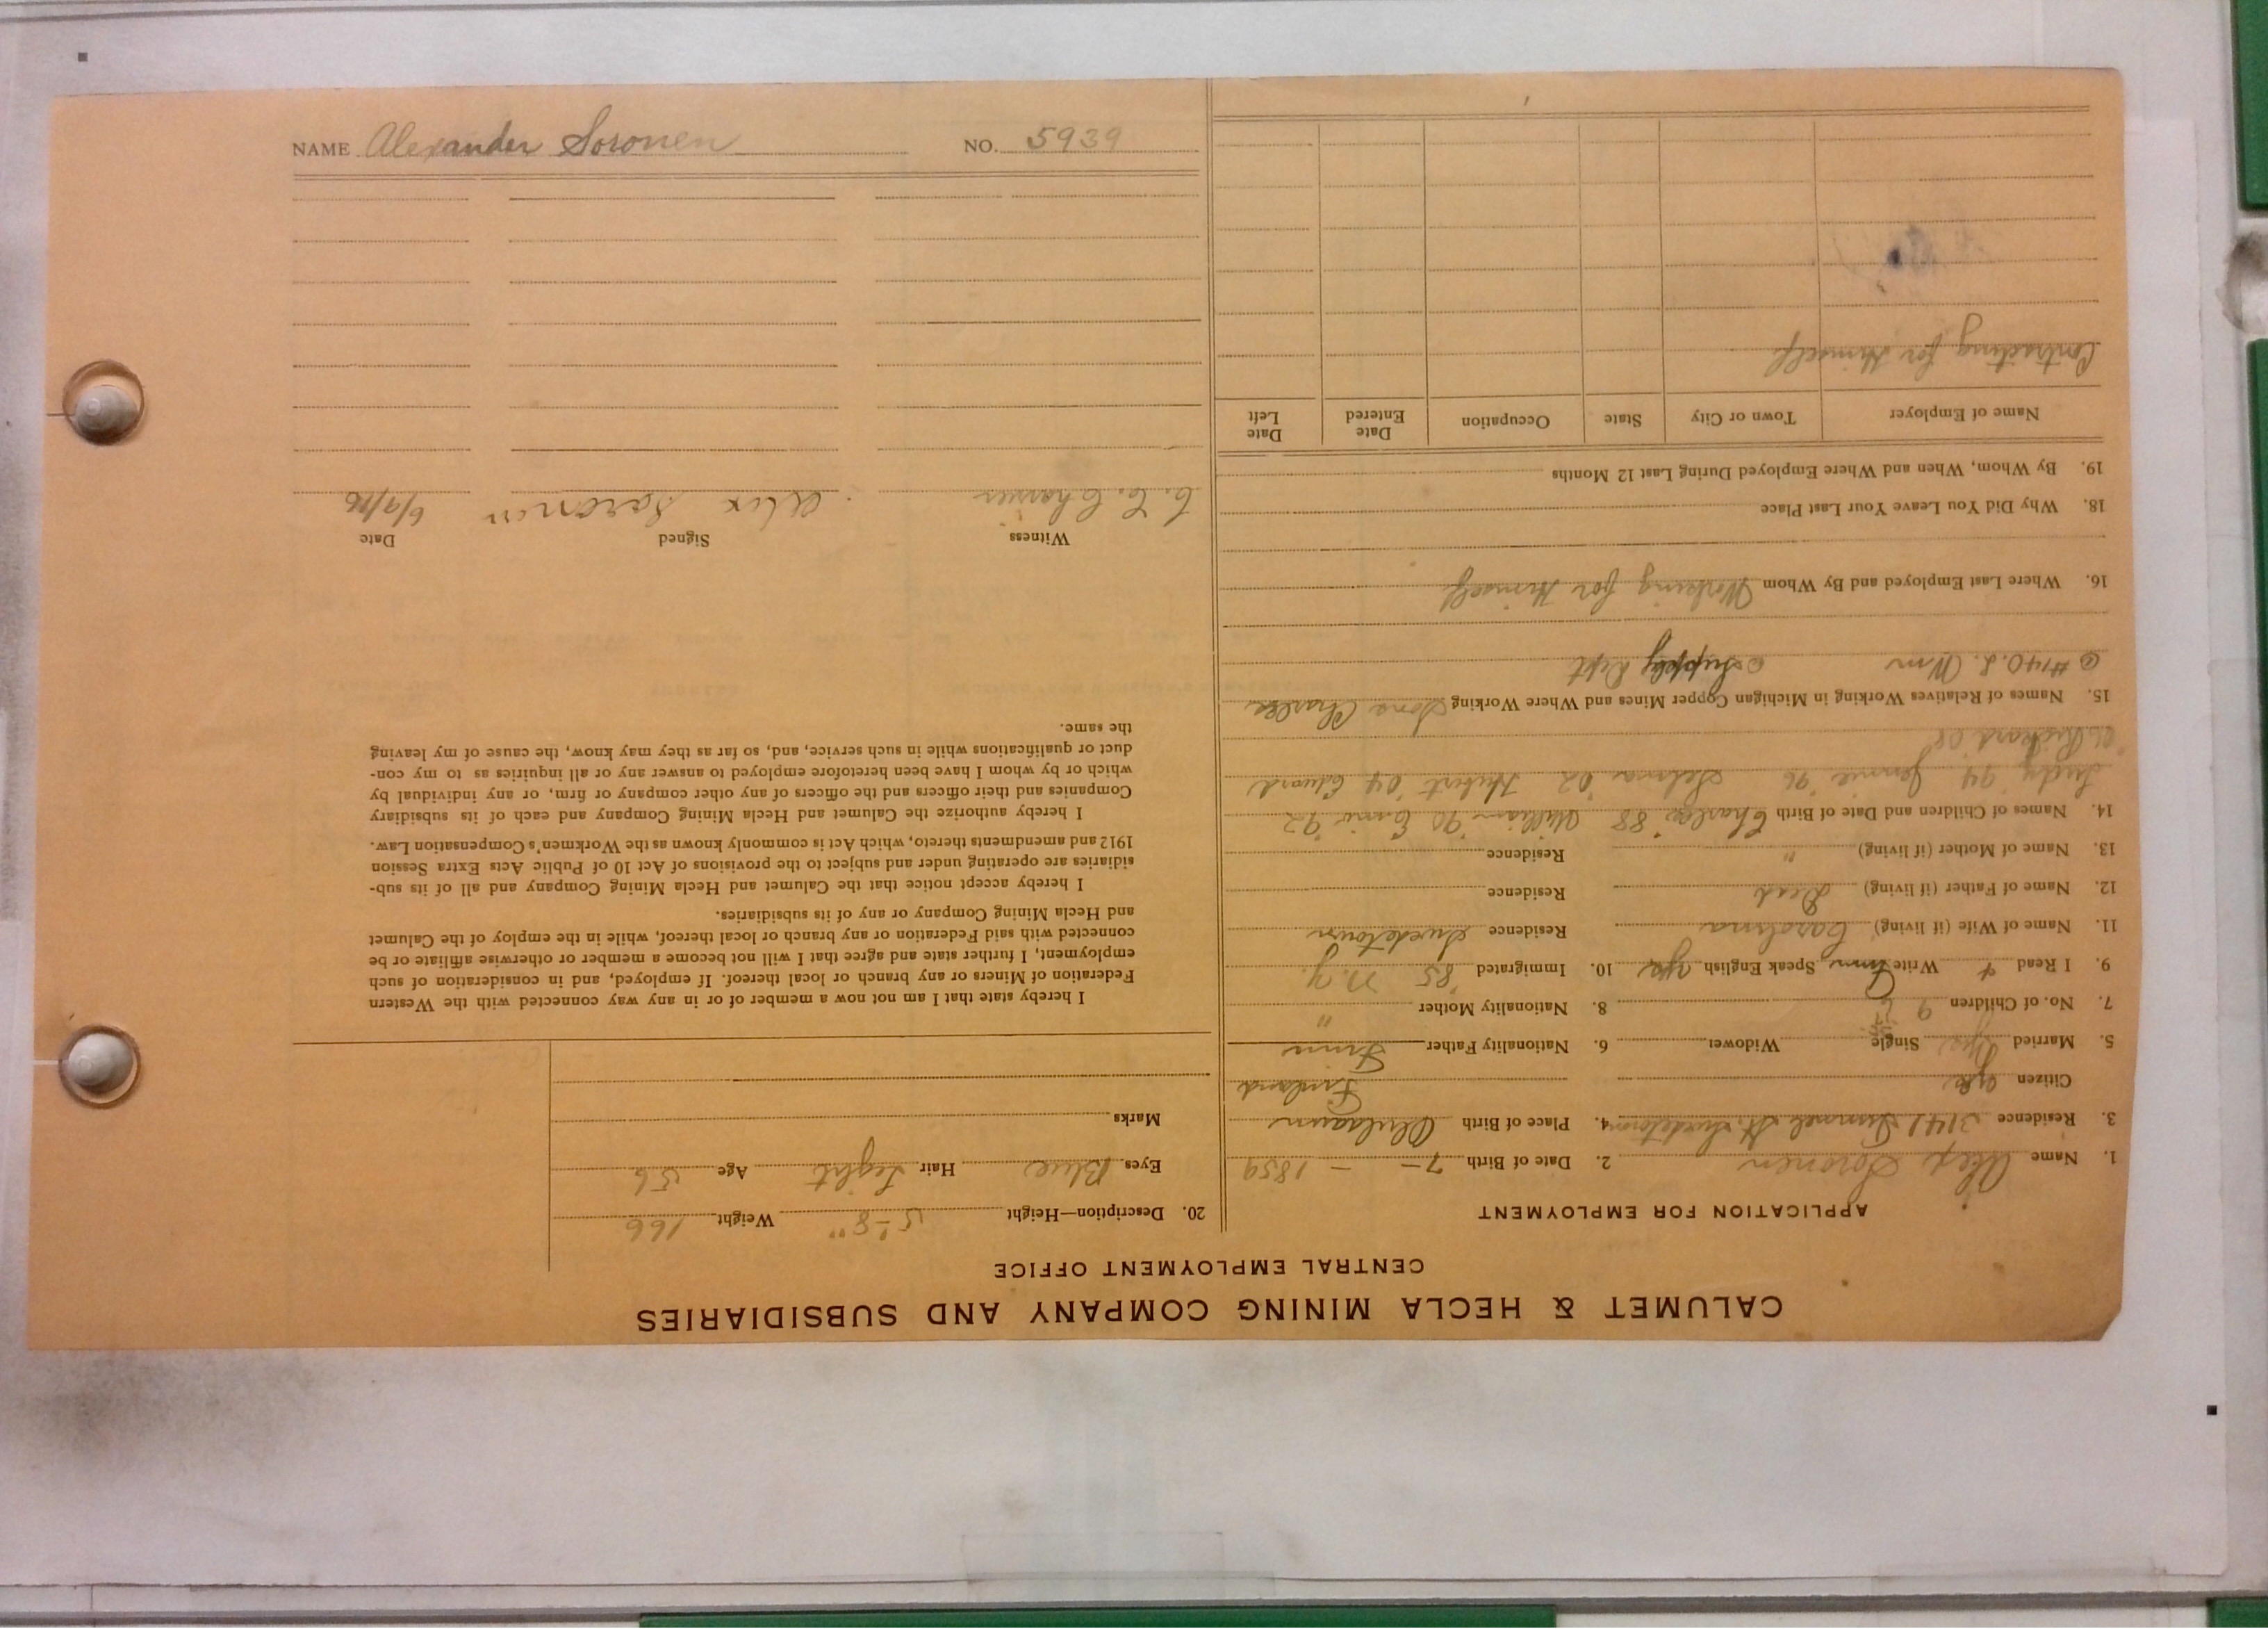 NAME Alexander Soronen NO. 5939
CALUMET & HECLA MINING COMPANY AND SUBSIDIARIES
CENTRAL EMPLOYMENT OFFICE
APPLICATION FOR EMPLOYMENT
1. Name Alex Soronen 2. Date of Birth 7 - - 1859
3. Residence 3141 Tunnel St. Swedetown 4. Place of Birth
Citizen yes Finland
5. Married yes Single Widower 6. Nationality Father Finn
7. No. of Children 9 8. Nationality Mother "
9. I Read + Write Finn Speak English yes 10. Immigrated 85 N.Y.
11. Name of Wife (if living) Residence Swedetown
12. Name of Father (if living) Dead Residence
13. Name of Mother (if living) " Residence
14. Names of Children and Date of Birth Charles '88 William '90 '92
'94 Jennie '96 Selma '02 Hubert '04 Edward
08
15. Names of Relatives Working in Michigan Copper Mines and Where Working Sons Charles
Wm Supply Dept
16. Where Last Employed and By Whom Working for Himself
18. Why Did You Leave Your Last Place
19. By Whom, When and Where Employed During Last 12 Months
Name of Employer Town or City State Occupation Date Entered Date Left
Contracting for Himself
20. Description—Height 5-8" Weight 166
Eyes Blue Hair Light Age 56
Marks
I hereby state that I am not now a member of or in any way connected with the Western
Federation of Miners or any branch or local thereof. If employed, and in consideration of such
employment, I further state and agree that I will not become a member or otherwise affiliate or be
connected with said Federation or any branch or local thereof, while in the employ of the Calumet
and Hecla Mining Company or any of its subsidiaries.
I hereby accept notice that the Calumet and Hecla Mining Company and all of its sub-
sidiaries are operating under and subject to the provisions of Act 10 of Public Acts Extra Session
1912 and amendments thereto, which Act is commonly known as the Workmen's Compensation Law.
I hereby authorize the Calumet and Hecla Mining Company and each of its subsidiary
Companies and their officers and the officers of any other company or firm, or any individual by
which or by whom I have been heretofore employed to answer any or all inquiries as to my con-
duct or qualifications while in such service, and, so far as they may know, the cause of my leaving
the same.
Witness Signed Date
Alex Soronen 6/9/16